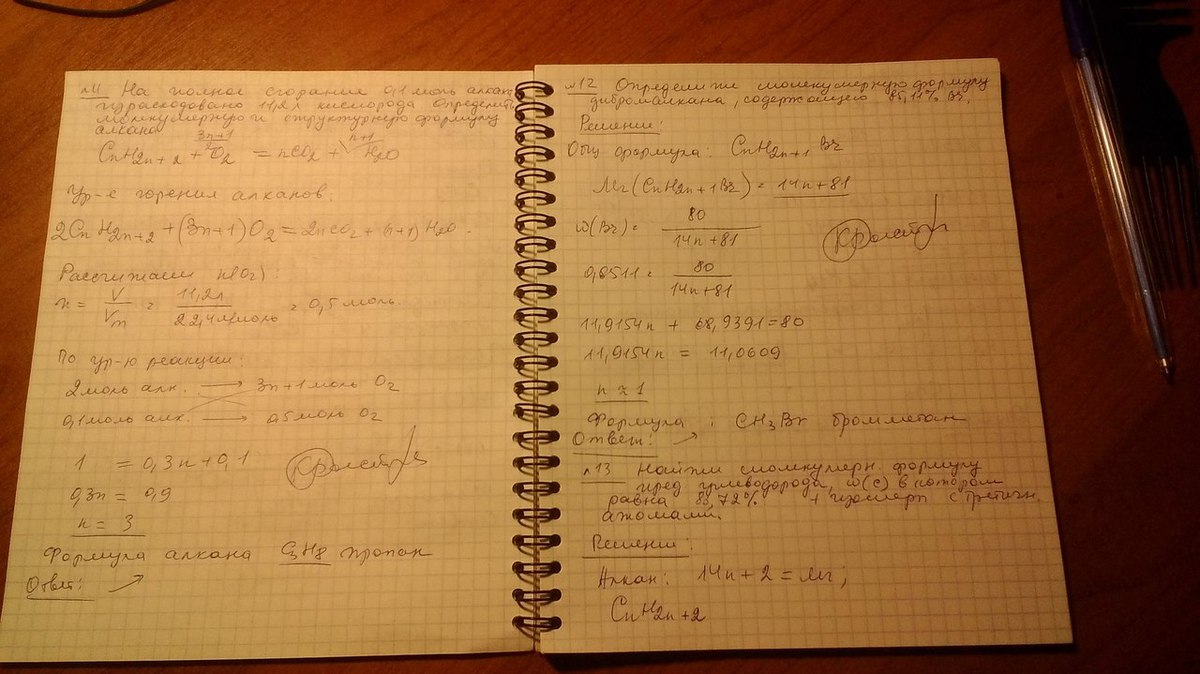 №11 На полное сгорание 0,1 моль алкана
израсходовано 11,2л кислорода Определить
молекулярную и структурную формулу
алкана
CnH2n+2 + (3n+1)/2 O2 = nCO2 + (n+1) H2O
Ур-е горения алканов:
2CnH2n+2 + (3n+1)O2 = 2nCO2 + (n+1)H2O.
Рассчитаем n(O2):
n = V/Vm = 11,2л/22,4л/моль = 0,5 моль.
По ур-ю реакции:
2моль алк. → 3n+1 моль O2
0,1моль алк. → 0,5моль O2
1 = 0,3n+0,1
0,3n = 0,9
n = 3
Формула алкана C3H8 пропан
Ответ: ↗
№12 Определите молекулярную формулу
бромалкана, содержащего 85,11% Br.
Решение:
Общ формула: CnH2n+1 Br
Mr(CnH2n+1Br) = 14n+81
w(Br) = 80/14n+81
0,8511 = 80/14n+81
11,9154n + 68,9391=80
11,9154n = 11,0609
n ≈ 1
Формула: CH3Br бромметан
Ответ: ↗
№13 Найти молекулярн. формулу
пред углеводорода, w(C) в котором
равна 85,72% + изомеры с третичн
атомами.
Решение:
Алкан: 14n+2 = Mr;
CnH2n+2